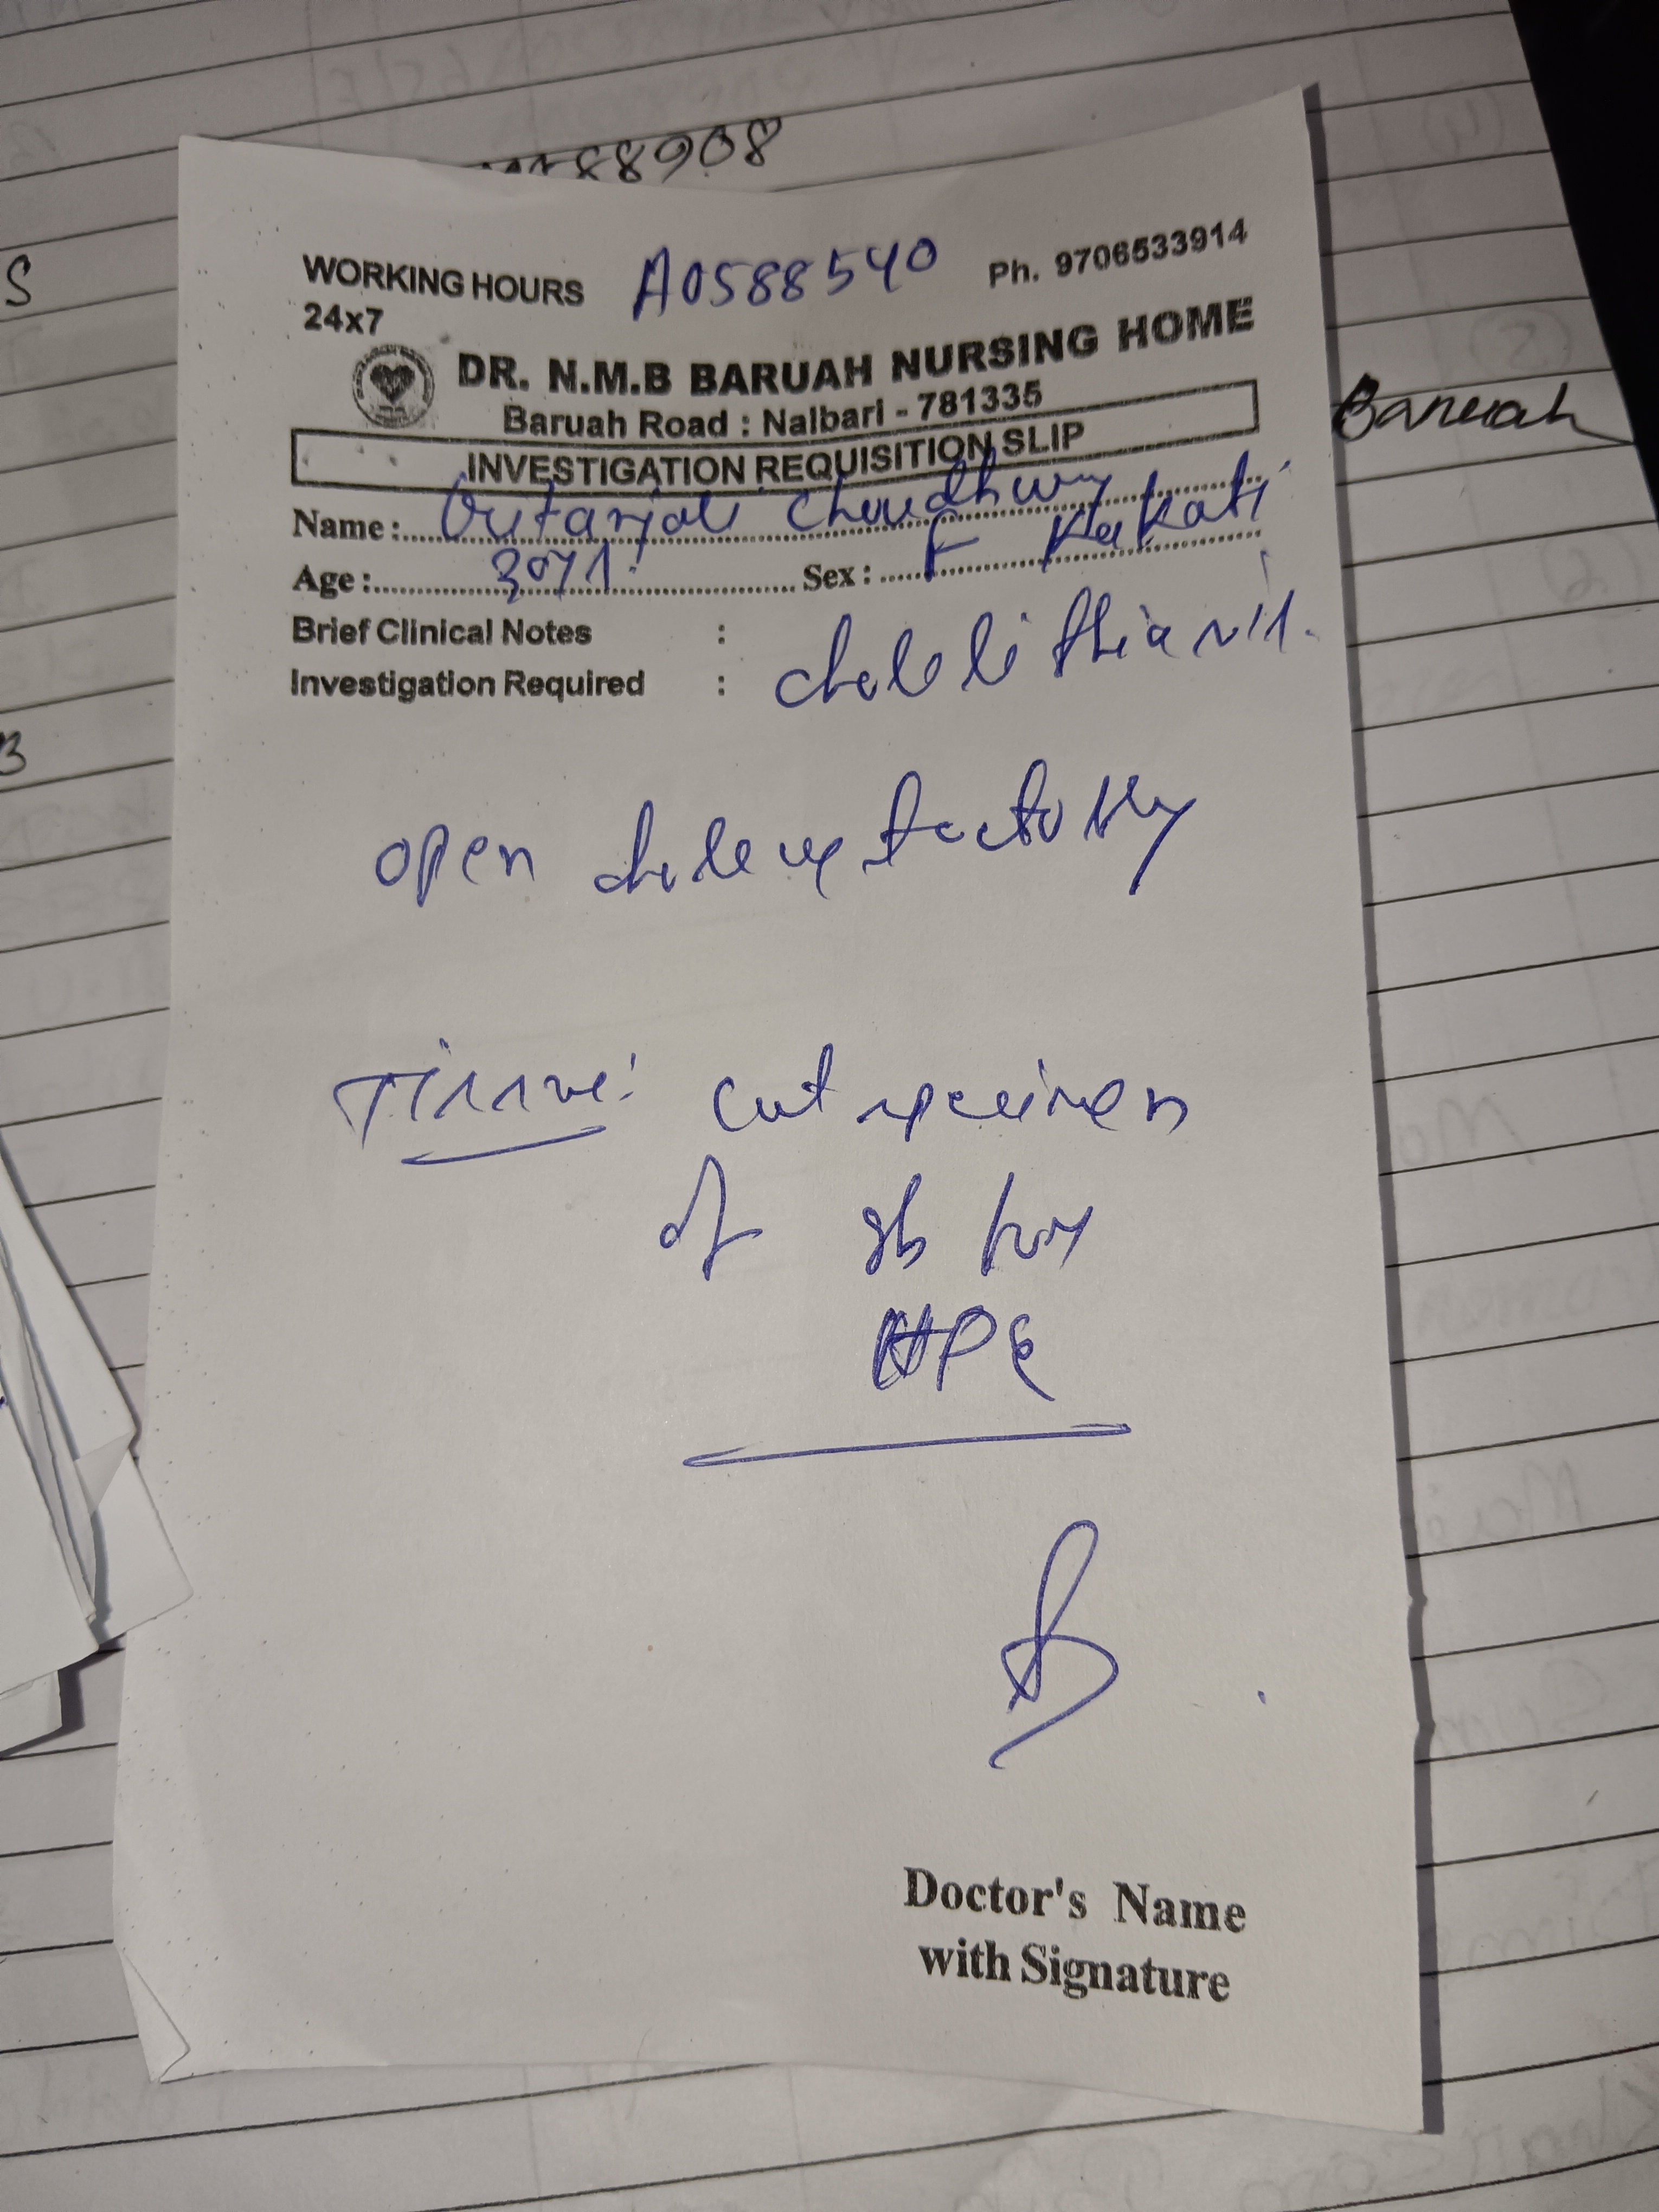 88908
WORKING HOURS A0588540 Ph. 9706533914
24x7
DR. N.M.B BARUAH NURSING HOME
Baruah Road : Nalbari - 781335
INVESTIGATION REQUISITION SLIP
Baruah
Name : Choudhury
Kakati
Age : Sex : F
Brief Clinical Notes :
Investigation Required : cholelithiasis.
open cholecystectomy
Tissue: cut specimen
of gb for
HPE
Doctor's Name
with Signature